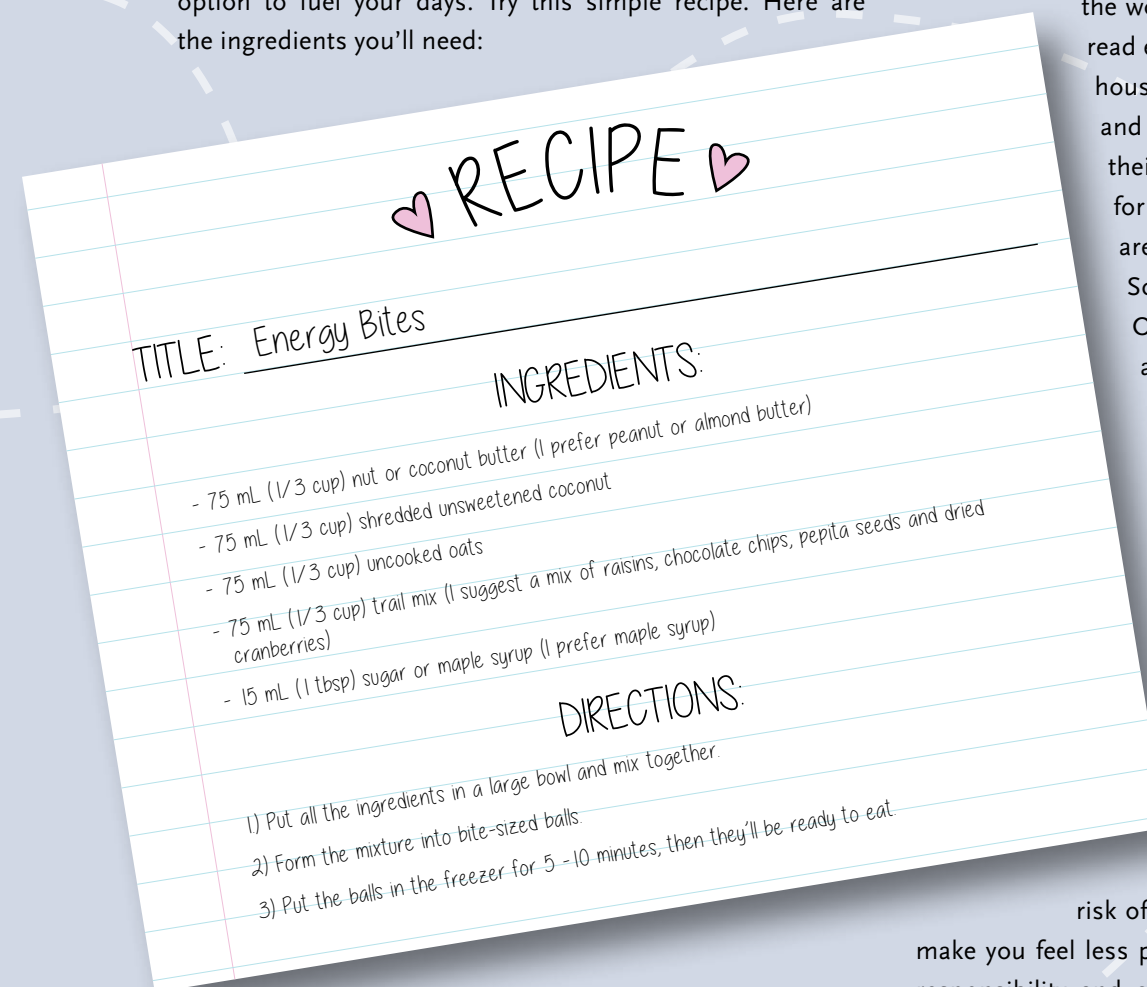 option to fuel your days. Try this simple recipe. Here are
the ingredients you'll need:
RECIPE
TITLE: Energy Bites
INGREDIENTS:
- 75 mL (1/3 cup) nut or coconut butter (I prefer peanut or almond butter)
- 75 mL (1/3 cup) shredded unsweetened coconut
- 75 mL (1/3 cup) uncooked oats
- 75 mL (1/3 cup) trail mix (I suggest a mix of raisins, chocolate chips, pepita seeds and dried
cranberries)
- 15 mL (1 tbsp) sugar or maple syrup (I prefer maple syrup)
DIRECTIONS:
1.) Put all the ingredients in a large bowl and mix together.
2) Form the mixture into bite-sized balls.
3) Put the balls in the freezer for 5 -10 minutes, then they'll be ready to eat.
the
read
and
for
risk of
make you feel less